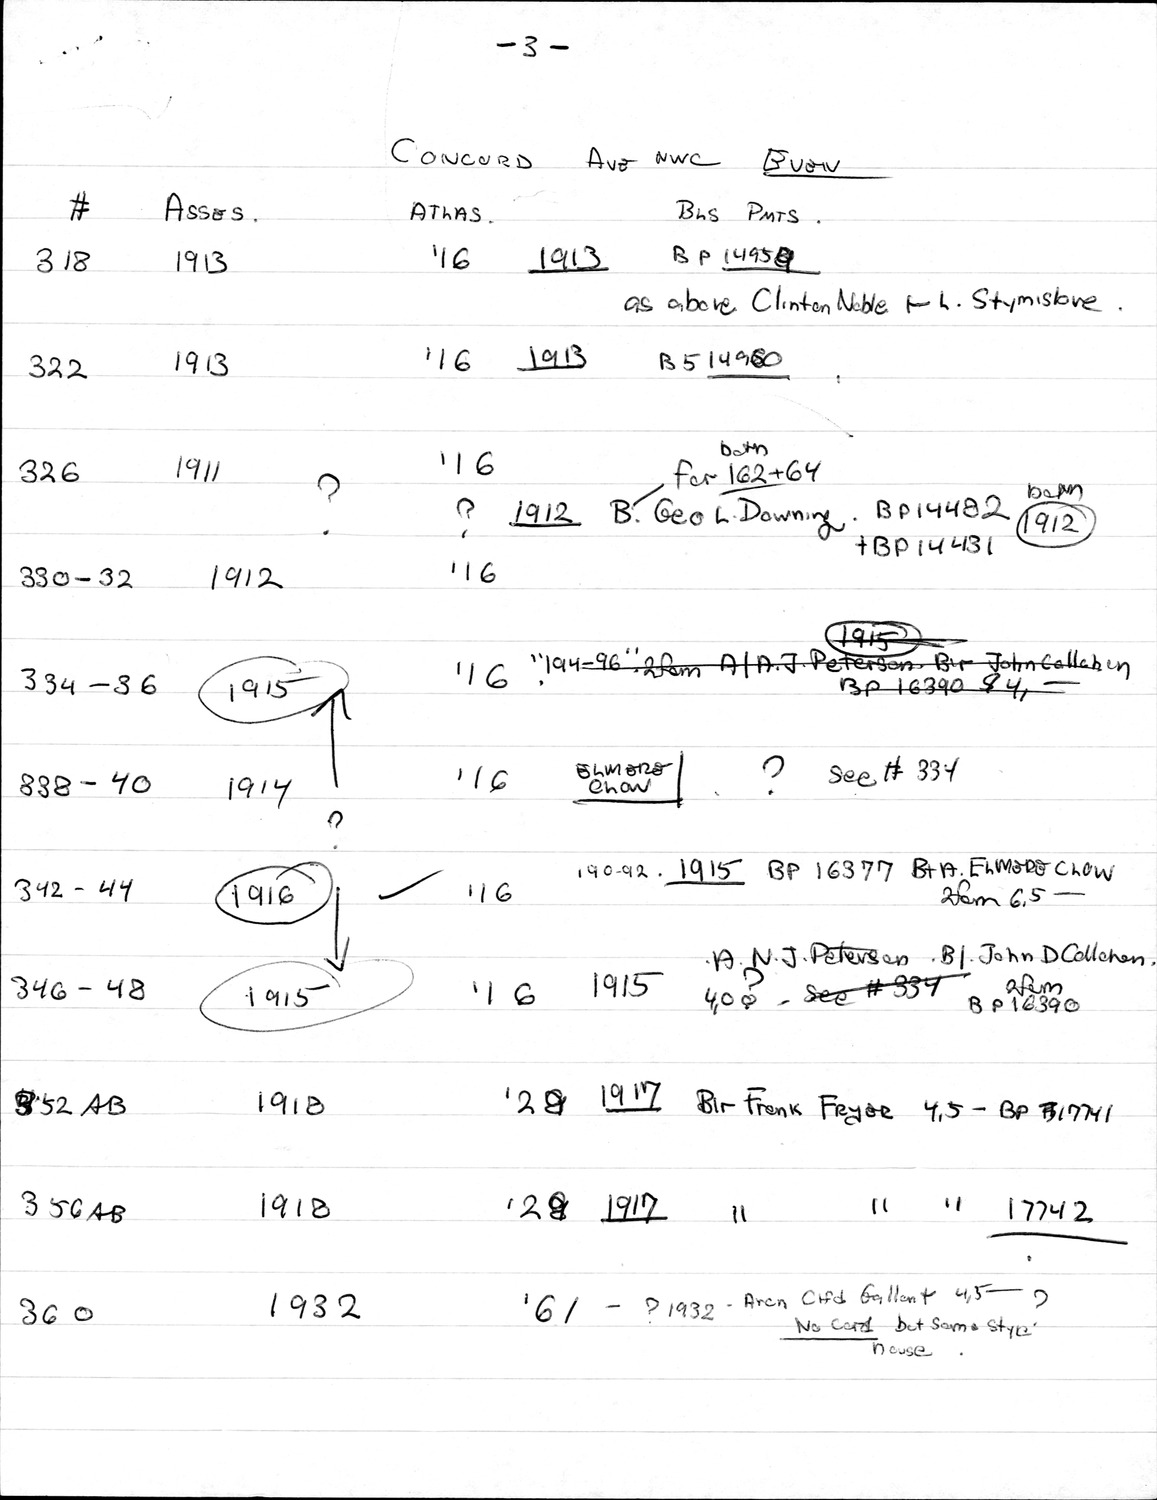 -3-
CONCORD AVE NWC EVEN
# ASSES. ATLAS. BLS PMTS.
318 1913 '16 1913 BP 14959
as above Clinton Noble + L. Stymislove.
322 1913 '16 1913 B5 14960
both
326 1911 ? '16 for 162+64
? 1912 B. Geo L. Downing. BP14482 1912
+BP14431
330-32 1912 '16
1915
334-36 1915 '16 "194=96" 2fam A/A.J. Peterson Blr John Callahan
BP 16390 $4,—
338-40 1914 '16 ELMORE CHOW ? See # 334
?
342-44 1916 '16 190-92. 1915 BP 16377 B+A. ELMORE CHOW
2fam 6,5—
A. N. J. Peterson. B/. John D Callahan.
346-48 1915 '16 1915 4,00? - See # 334 2fam
BP 16390
352 AB 1918 '28 1917 Blr Frank FRYOE 4,5 - BP 17741
356 AB 1918 '28 1917 " " " 17742
360 1932 '61 - ? 1932 - Arch Clfd Gallant 4,5— ?
No Card but same style
house.